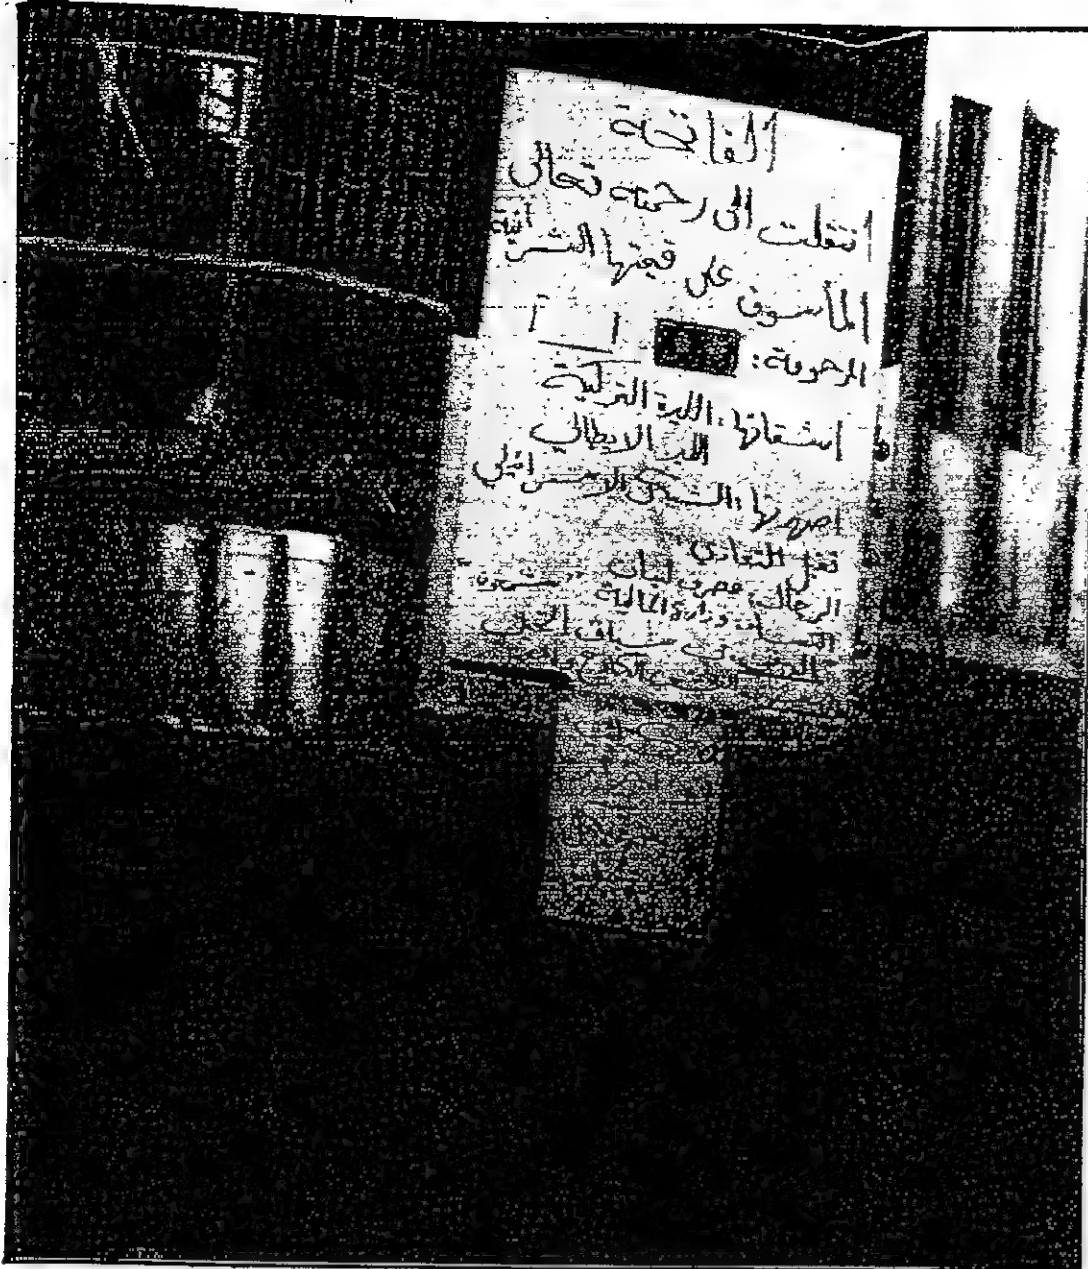 الفاتحة
انتقلت الى رحمته تعالى
المأسوف على قيمتها الشرائية
المرحومة: ل. ل.
اشقائها: الليرة التركية
الليرة الايطالية
صهرها: الشيكل الاسرائيلي
تقبل التعازي
الرجال: مصرف لبنان
وزارة المالية